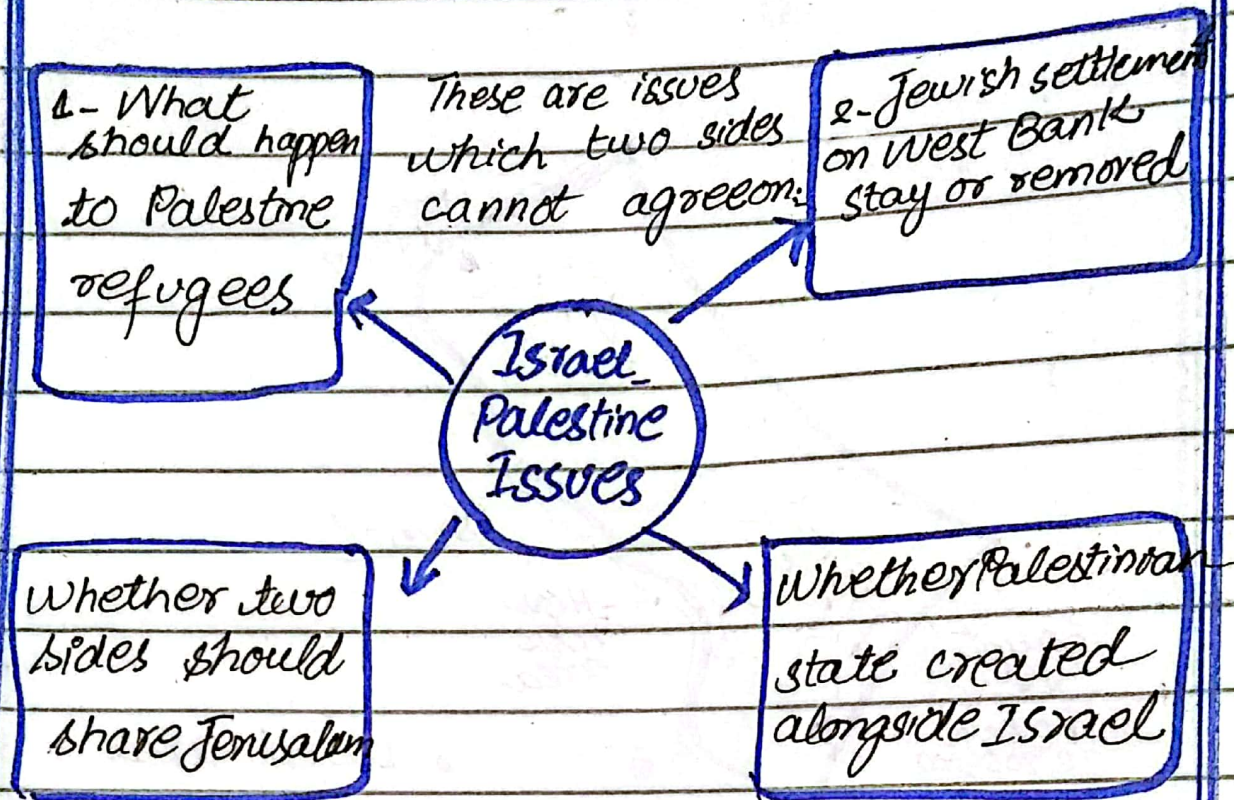 1- What
should happen
to Palestine
refugees
These are issues
which two sides
cannot agreeon:
2- Jewish settlement
on West Bank
stay or removed
Israel_
Palestine
Issues
Whether two
sides should
share Jerusalam
Whether Palestinian
state created
alongside Israel